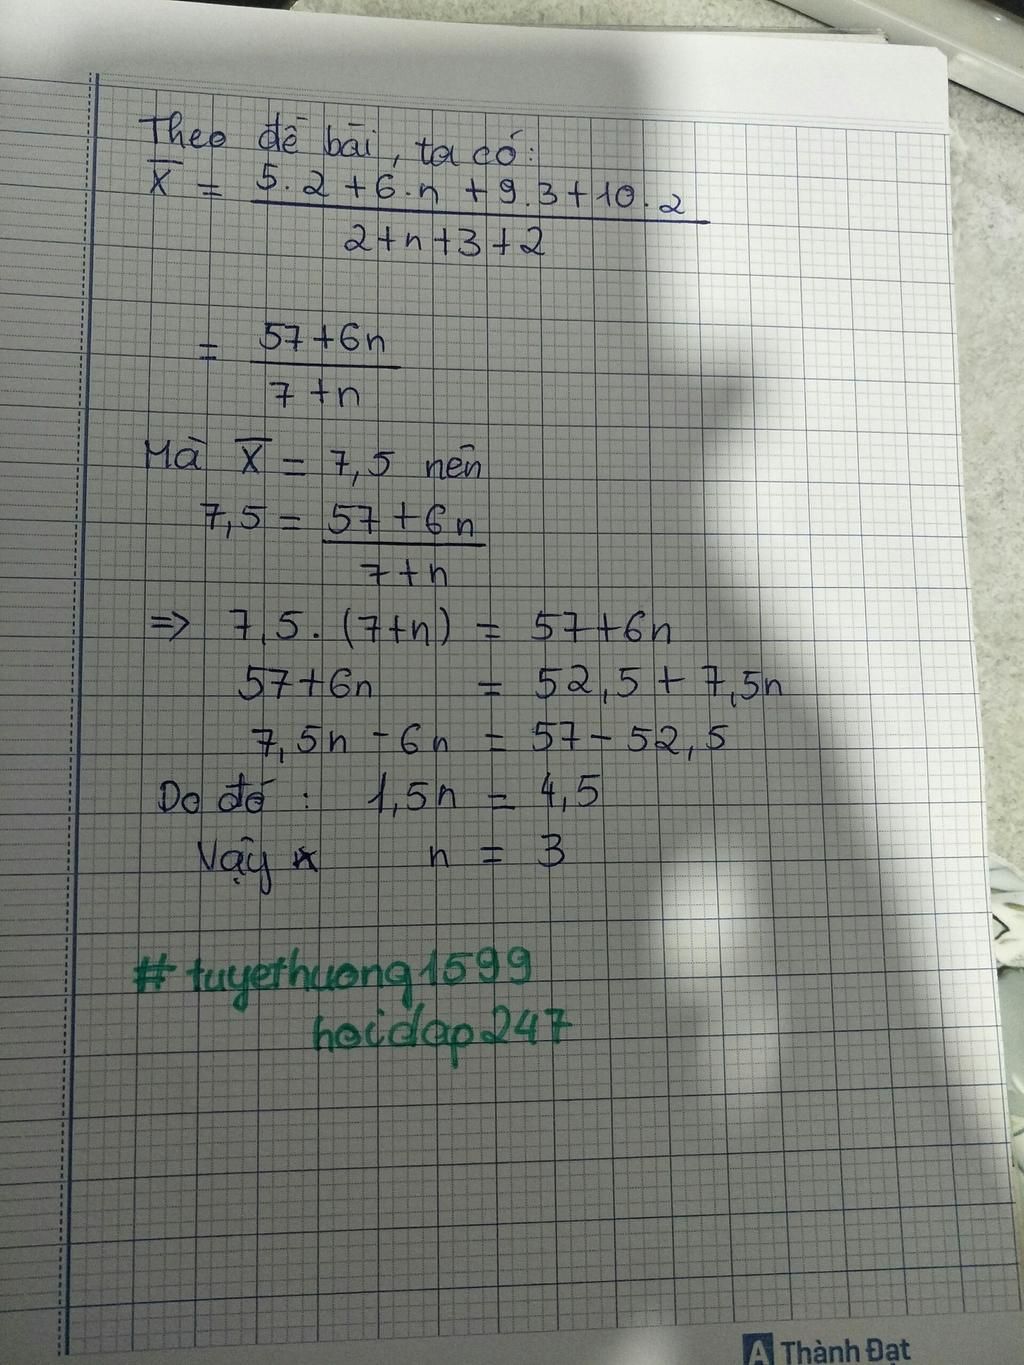 Theo đề bài, ta có:
X̅ = 5.2 + 6.n + 9.3 + 10.2
2+n+3+2
= 57+6n
7+n
Mà X̅ = 7,5 nên
7,5 = 57+6n
7+n
=> 7,5.(7+n) = 57+6n
57+6n = 52,5 + 7,5n
7,5n - 6n = 57 - 52,5
Do đó: 1,5n = 4,5
Vậy n = 3
#tuyethuong1599
hoidap247
A Thành Đạt